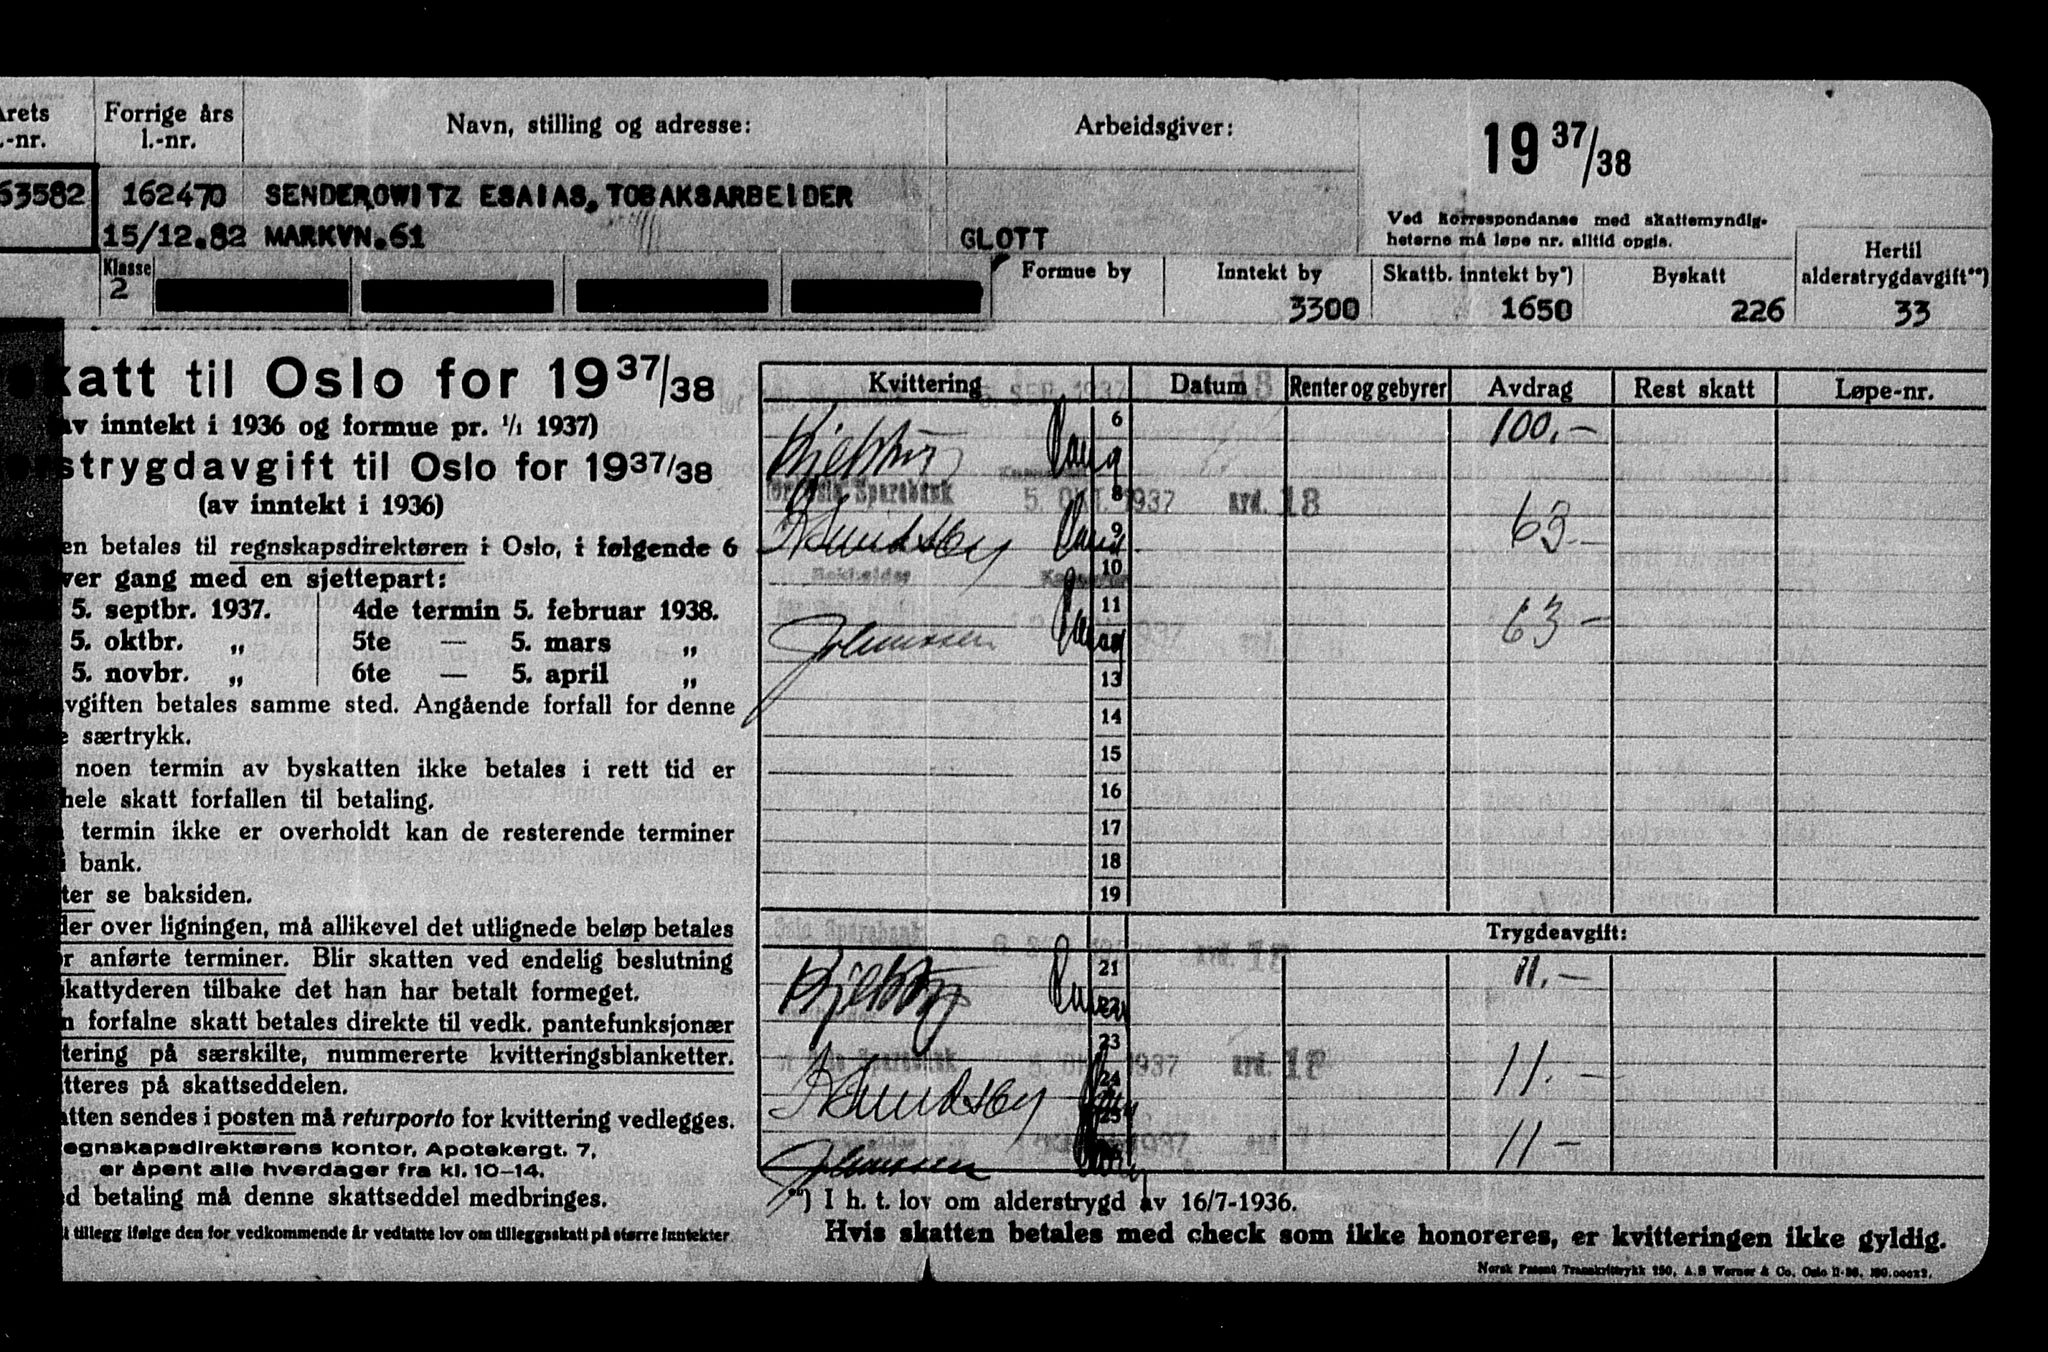 Årets
l.-nr.
Forrige års
l.-nr.
Navn, stilling og adresse:
Arbeidsgiver:
19 37/38
63582
162470
SENDEROWITZ ESAIAS, TOBAKSARBEIDER
15/12.82 MARKVN.61
GLOTT
Ved korrespondanse med skattemyndig-
heterne må løpe nr. alltid opgis.
Klasse
2
Formue by
Inntekt by
3300
Skattb. inntekt by*)
1650
Byskatt
226
Hertil
alderstrygdavgift**)
33
skatt til Oslo for 19 37/38
av inntekt i 1936 og formue pr. 1/1 1937)
erstrygdavgift til Oslo for 19 37/38
(av inntekt i 1936)
en betales til regnskapsdirektøren i Oslo, i følgende 6
ver gang med en sjettepart:
5. septbr. 1937. 4de termin 5. februar 1938.
5. oktbr. „ 5te — 5. mars „
5. novbr. „ 6te — 5. april „
vgiften betales samme sted. Angående forfall for denne
e særtrykk.
noen termin av byskatten ikke betales i rett tid er
hele skatt forfallen til betaling.
termin ikke er overholdt kan de resterende terminer
i bank.
ter se baksiden.
der over ligningen, må allikevel det utlignede beløp betales
or anførte terminer. Blir skatten ved endelig beslutning
skattyderen tilbake det han har betalt formeget.
n forfalne skatt betales direkte til vedk. pantefunksjonær
ttering på særskilte, nummererte kvitteringsblanketter.
itteres på skattseddelen.
atten sendes i posten må returporto for kvittering vedlegges.
egnskapsdirektørens kontor, Apotekergt. 7,
er åpent alle hverdager fra kl. 10–14.
ed betaling må denne skattseddel medbringes.
t tillegg ifølge den for vedkommende år vedtatte lov om tilleggsskatt på større inntekter.
Kvittering
Datum
Renter og gebyrer
Avdrag
Rest skatt
Løpe-nr.
5. SEP. 1937
18
6
100.—
for Oslo Sparebank
8
5. OKT. 1937
avd. 18
9
63.—
10
11
63 —
1937
13
14
15
16
17
18
19
Trygdeavgift:
Oslo Sparebank
21
11.—
22
23
for Oslo Sparebank
5. OKT. 1937
avd. 18
24
11.—
25
1937
11 —
Johanssen
**) I h. t. lov om alderstrygd av 16/7-1936.
Hvis skatten betales med check som ikke honoreres, er kvitteringen ikke gyldig.
Norsk Patent Transkvittrykk 250, A.S Werner & Co. Oslo